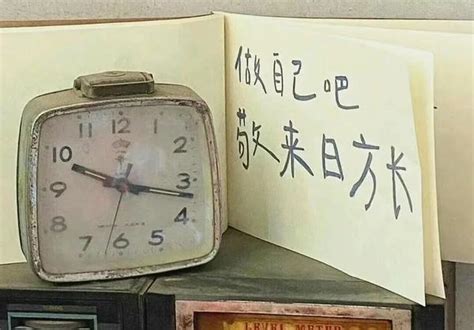 做自己吧
敬来日方长
12
1
2
3
4
5
6
7
8
9
10
11
LEVEL METER